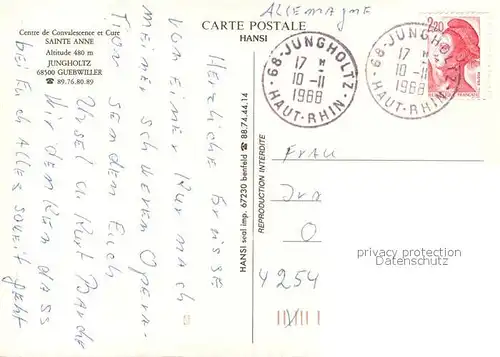 ALLEMAGNE
CARTE POSTALE
HANSI
Centre de Convalescence et Cure
SAINTE ANNE
Altitude 480 m
JUNGHOLTZ
68500 GUEBWILLER
☎ 89.76.80.89
68-JUNGHOLTZ
17 H
10-11
1988
HAUT-RHIN
68-JUNGHOLTZ
17 H
10-11
1988
HAUT-RHIN
2,20
Herzliche Grüsse
von einer Kur nach
meiner schweren Opera-
tion senden Euch
Ursel u. Kurt
Wir denken dass
bei Euch alles soweit geht
HANSI seul imp. 67230 benfeld ☎ 88.74.44.14
REPRODUCTION INTERDITE
Frau
O
4254
privacy protection
Datenschutz